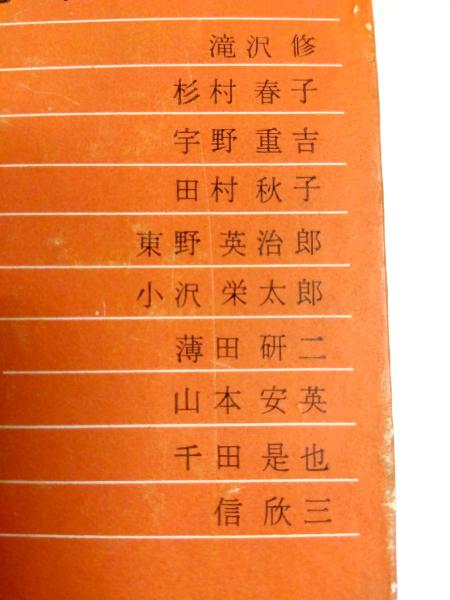 滝沢 修
杉村 春子
宇野 重吉
田村 秋子
東野 英治郎
小沢 栄太郎
薄田 研二
山本 安英
千田 是也
信 欣三